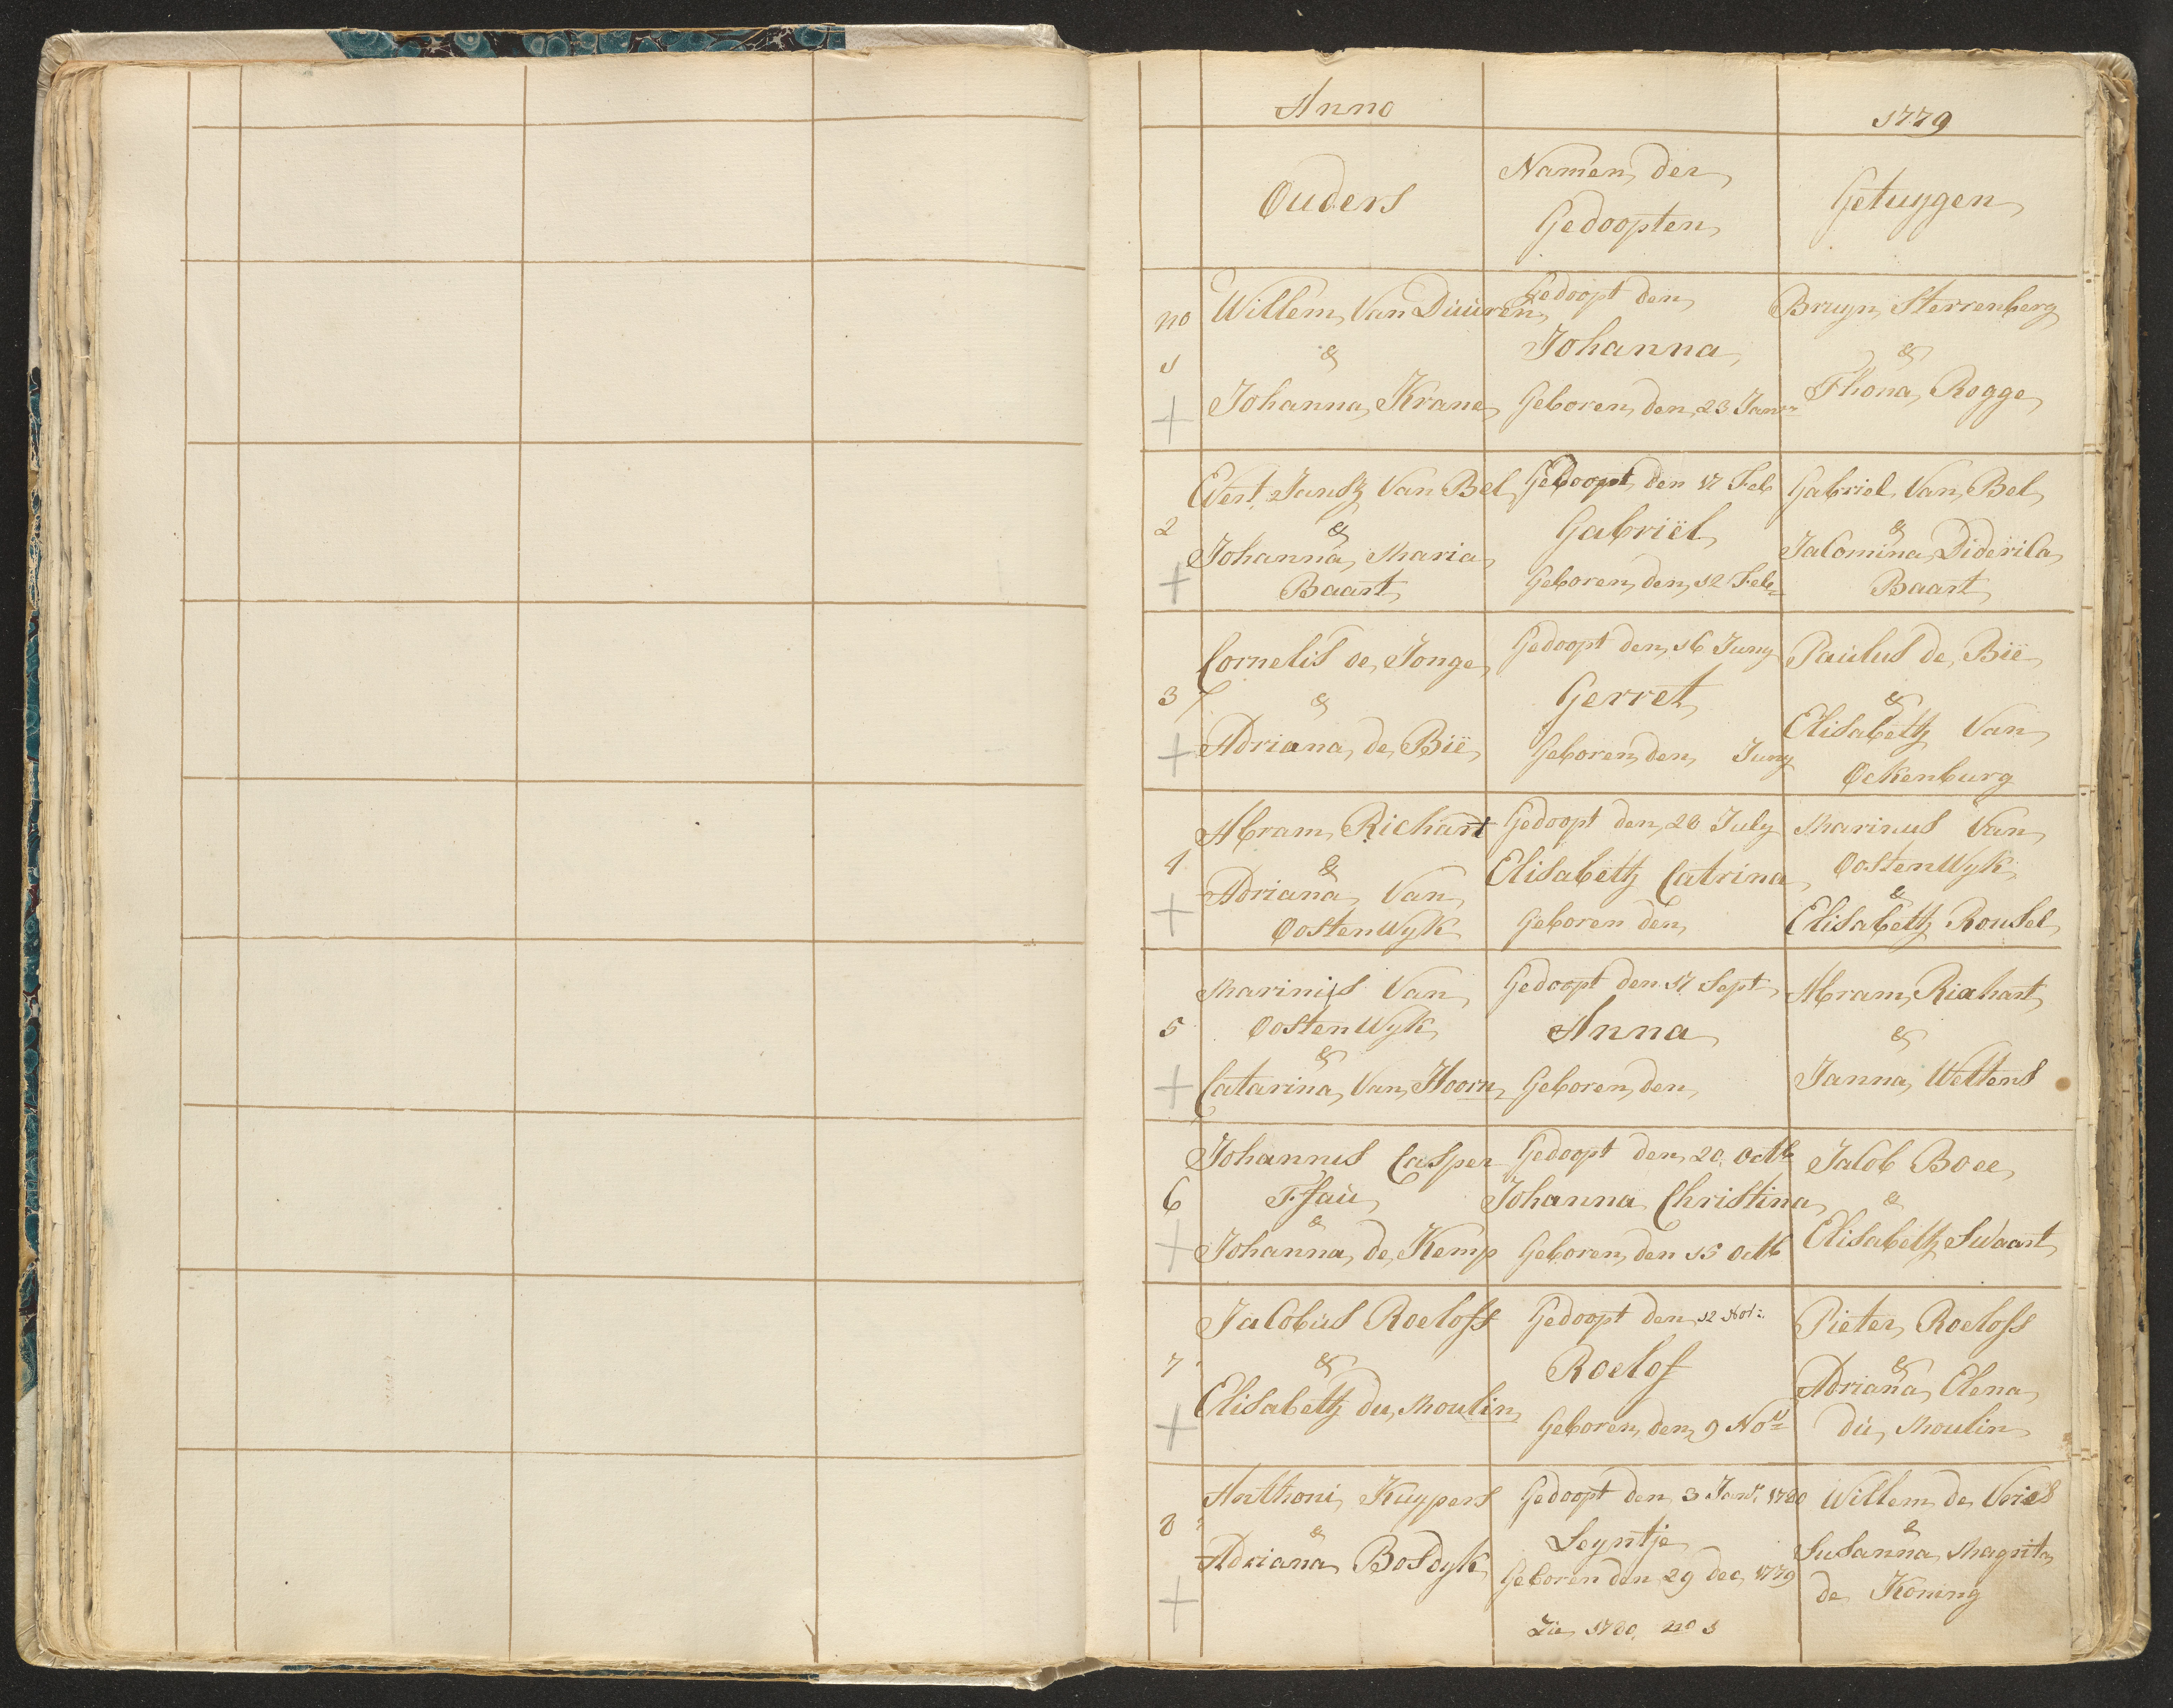 Anno 1779
Ouders
Namen der
Gedoopten
Getuygen
no
1
Willem Van Duüren
&
Johanna Krane
Gedoopt den
Johanna
Geboren den 23 Janr
Bruyn Sterrenberg
&
Thona Rogge
2
Evert Jansz Van Bel
&
Johanna Maria
Baart
Gedoopt den 17 Feb
Gabriël
Geboren den 12 Feb
Gabriel Van Bel
&
Jacomina Diderica
Baart
3
Cornelis de Jonge
&
Adriana de Bië
Gedoopt den 16 Juny
Gerret
Geboren den Juny
Paulus de Bië
&
Elisabeth Van
Ockenburg
4
Abram Richart
&
Adriana Van
OostenWyk
Gedoopt den 28 July
Elisabeth Catrina
Geboren den
Marinus Van
OostenWyk
&
Elisabeth Rousel
5
Marinus Van
OostenWyk
&
Catarina Van Hoorn
Gedoopt den 17 Sept
Anna
Geboren den
Abram Richart
&
Janna Wettens
6
Johannes Casper
&
Johanna de Kemp
Gedoopt den 20 Octb
Johanna Christina
Geboren den 15 Octb
Jacob Boee
&
Elisabeth Swaart
7
Jacobus Roelofs
&
Elisabeth du Moulin
Gedoopt den 12 Nov:
Roelof
Geboren den 9 Nov
Pieter Roelofs
&
Adriana Elena
du Moulin
8
Anthoni Kuypers
&
Adriana Bosdyk
Gedoopt den 3 Janr 1780
Leyntje
Geboren den 29 dec 1779
Zie 1780 no 1
Willem de Vries
&
Susanna Magrita
de Koning